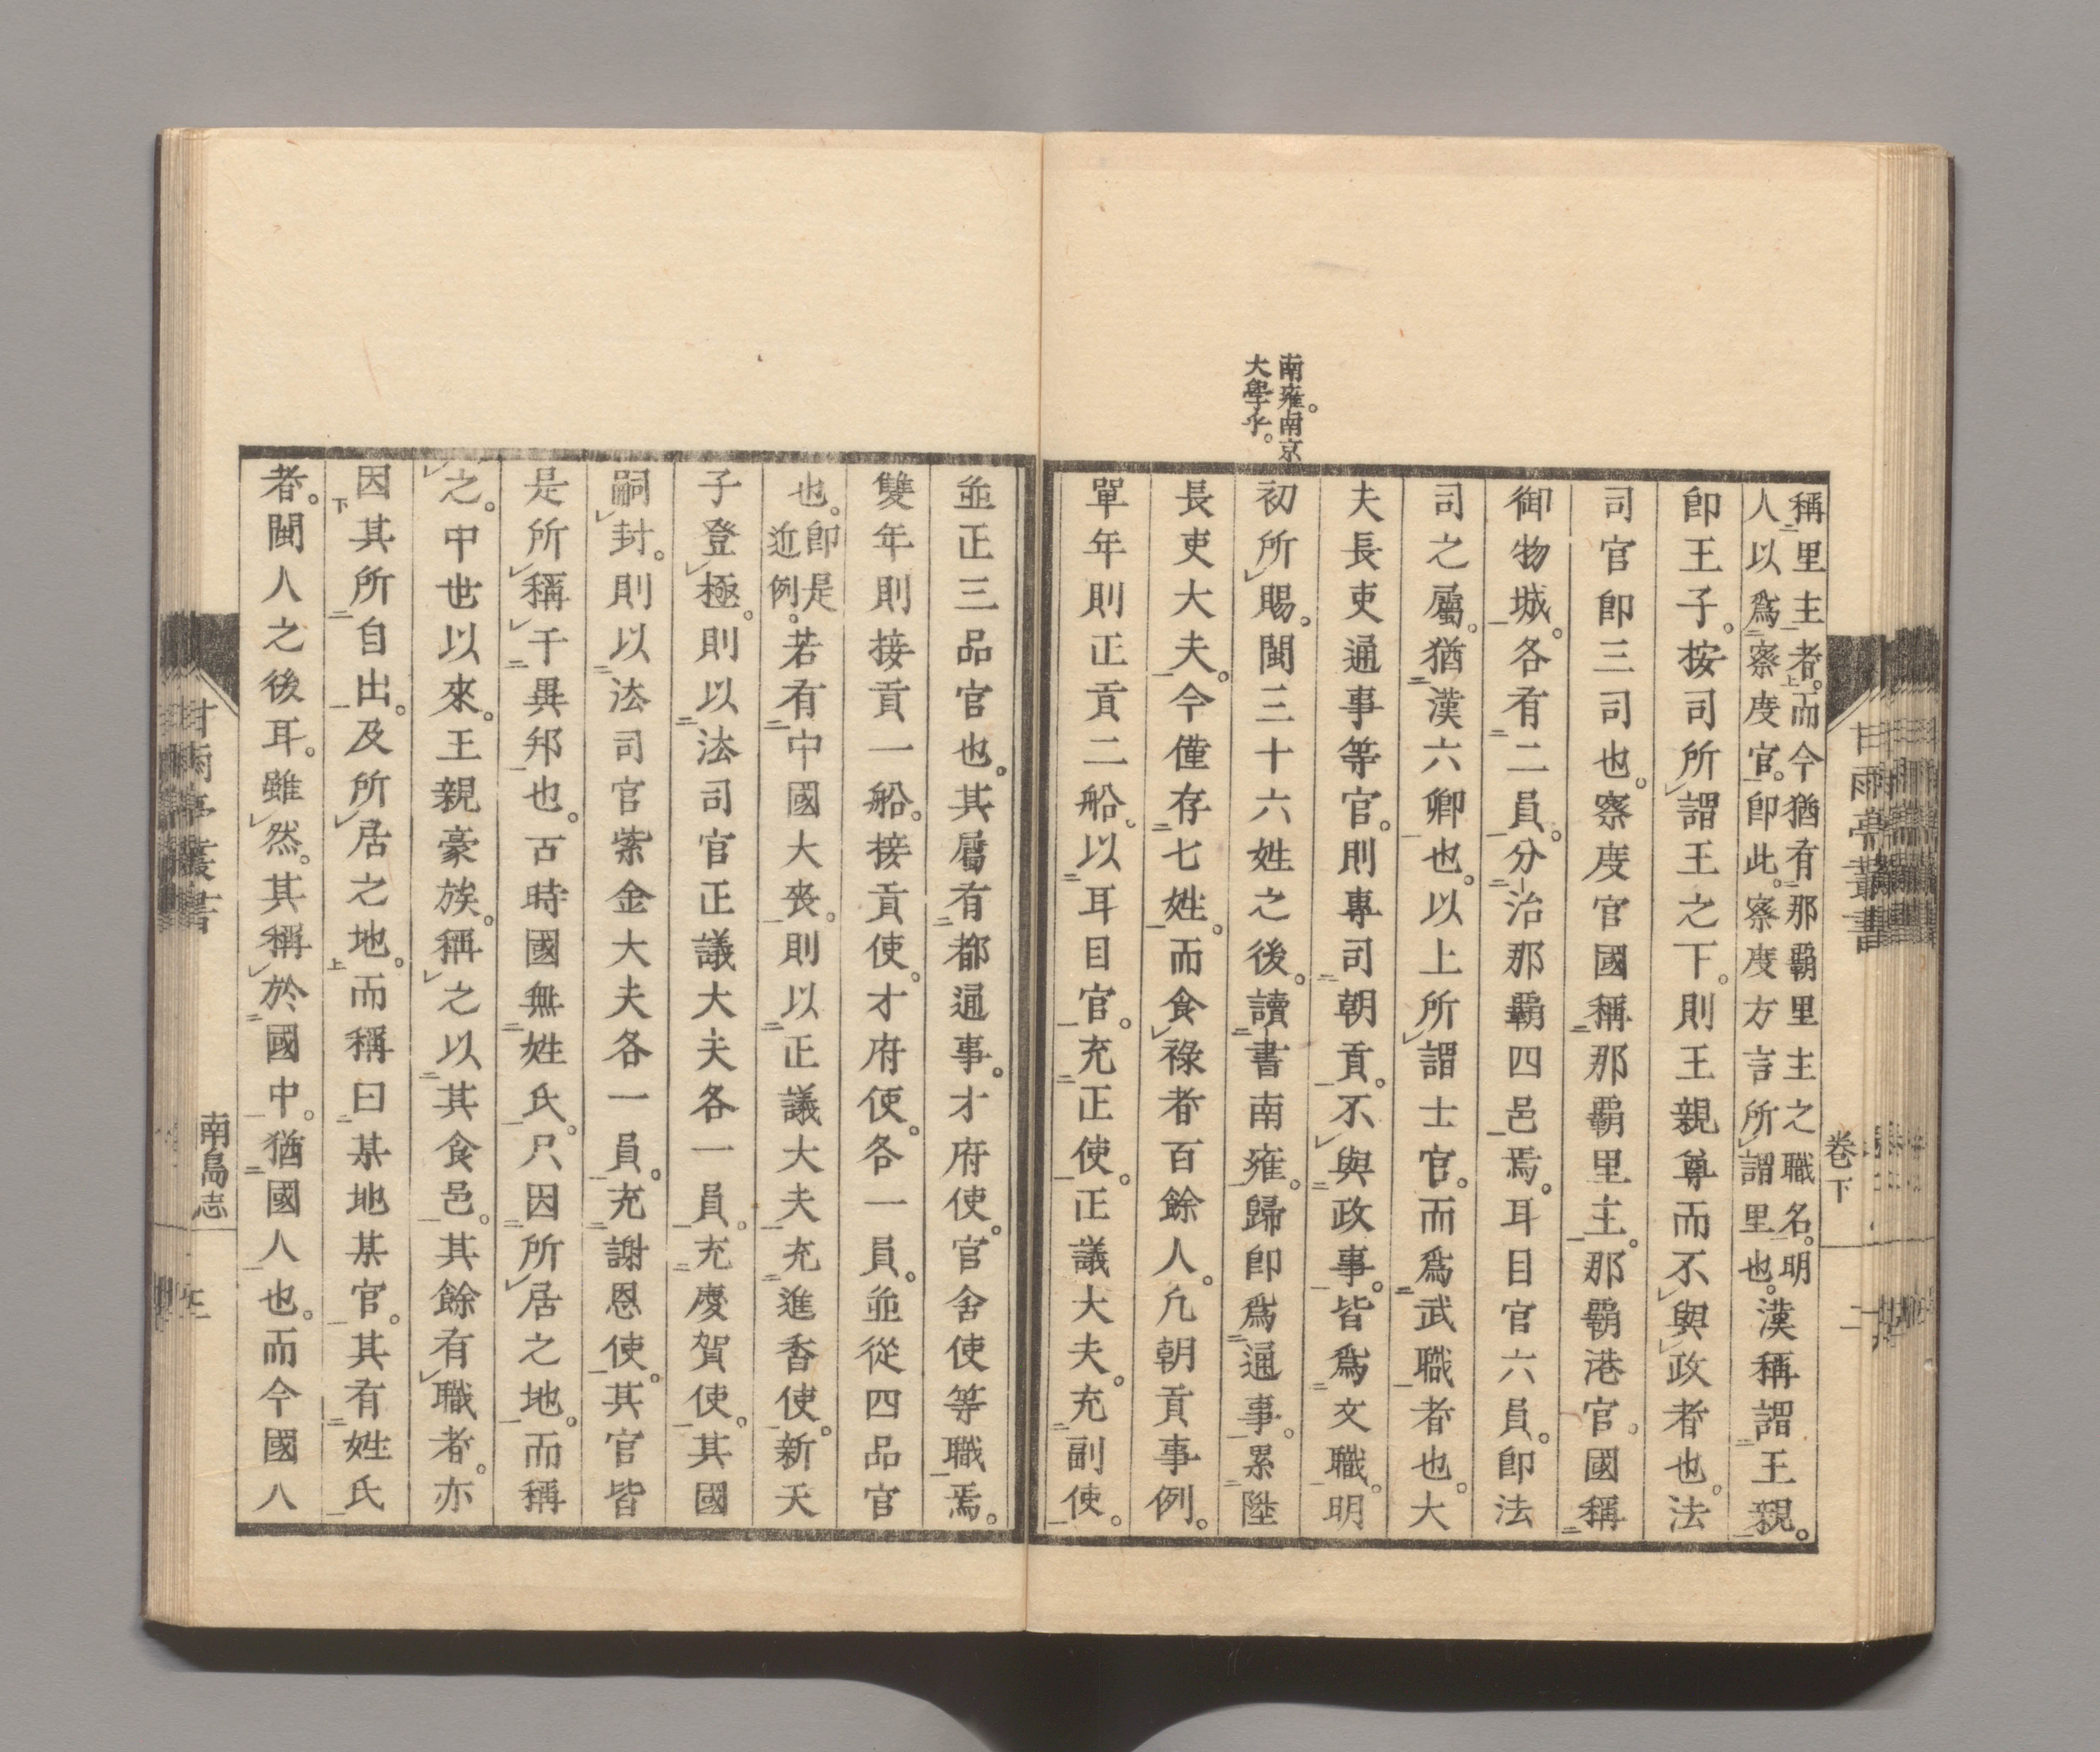 甘雨亭叢書
卷下
二
稱里主者。而今猶有那霸里主之職名。明
人以爲察度官。即此。察度方言所謂里也。漢稱謂王親。
即王子。按司所謂王之下。則王親尊而不與政者也。法
司官即三司也。察度官國稱那霸里主。那霸港官。國稱
御物城。各有二員。分治那霸四邑焉。耳目官六員。即法
司之屬。猶漢六卿也。以上所謂士官。而爲武職者也。大
夫長吏通事等官。則專司朝貢。不與政事。皆爲文職。明
南雍。南京
大學乎。
初所賜。閩三十六姓之後。讀書南雍。歸即爲通事。累陞
長吏大夫。今僅存七姓。而食祿者百餘人。凡朝貢事例。
單年則正貢二船。以耳目官。充正使。正議大夫。充副使。
並正三品官也。其屬有都通事。才府使。官舍使等職焉。
雙年則接貢一船。接貢使。才府使。各一員。並從四品官
也。即是
近例。若有中國大喪。則以正議大夫充進香使。新天
子登極。則以法司官正議大夫各一員。充慶賀使。其國
嗣封。則以法司官紫金大夫各一員。充謝恩使。其官皆
是所稱于異邦也。古時國無姓氏。只因所居之地。而稱
之。中世以來。王親豪族。稱之以其食邑。其餘有職者。亦
因其所自出。及所居之地。而稱曰某地某官。其有姓氏
者。閩人之後耳。雖然。其稱於國中。猶國人也。而今國人
甘雨亭叢書
南島志